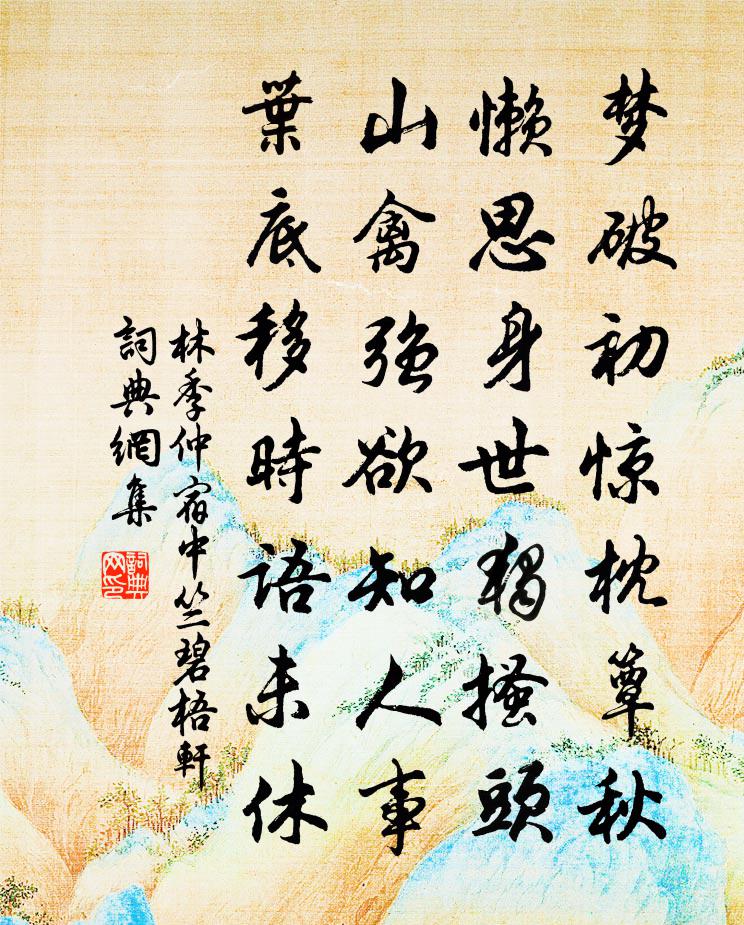 梦破初惊枕簟秋
懒思身世独搔頭
山禽强欲知人事
葉底移時語未休
林季仲宿中竺碧梧軒
詞典網集
詞典
网印